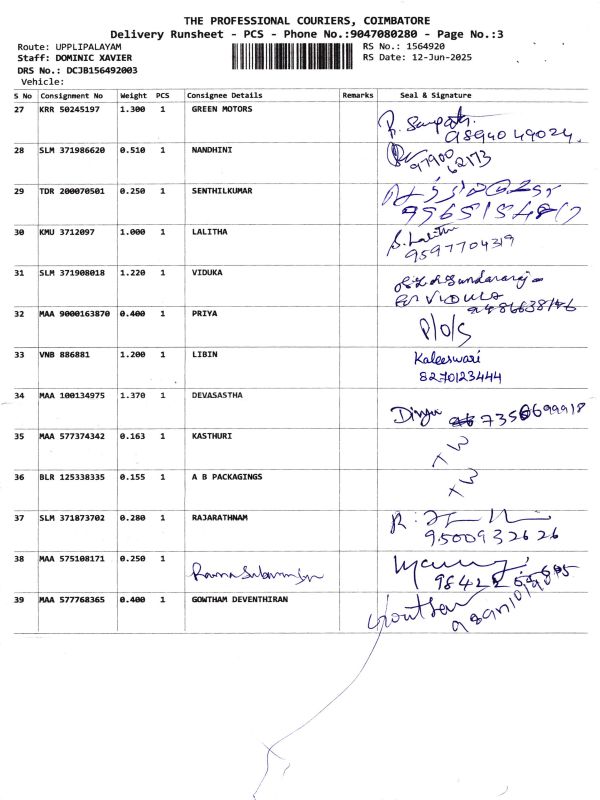 THE PROFESSIONAL COURIERS, COIMBATORE
Delivery Runsheet - PCS - Phone No.:9047080280 - Page No.:3
Route: UPPLIPALAYAM RS No.: 1564920
Staff: DOMINIC XAVIER RS Date: 12-Jun-2025
DRS No.: DCJB156492003
Vehicle:
S No Consignment No Weight PCS Consignee Details Remarks Seal & Signature
27 KRR 50245197 1.300 1 GREEN MOTORS
9894049024.
28 SLM 371986620 0.510 1 NANDHINI
97900
62173
29 TDR 200070501 0.250 1 SENTHILKUMAR
30 KMU 3712097 1.000 1 LALITHA S. Lalitha
9597704319
31 SLM 371908018 1.220 1 VIDUKA
32 MAA 9000163870 0.400 1 PRIYA
P/O/S
33 VNB 886881 1.200 1 LIBIN Kaleeswari
8270123444
34 MAA 100134975 1.370 1 DEVASASTHA
Divya
35 MAA 577374342 0.163 1 KASTHURI
36 BLR 125338335 0.155 1 A B PACKAGINGS
37 SLM 371873702 0.280 1 RAJARATHNAM
9500932626
38 MAA 575108171 0.250 1
39 MAA 577768365 0.400 1 GOWTHAM DEVENTHIRAN